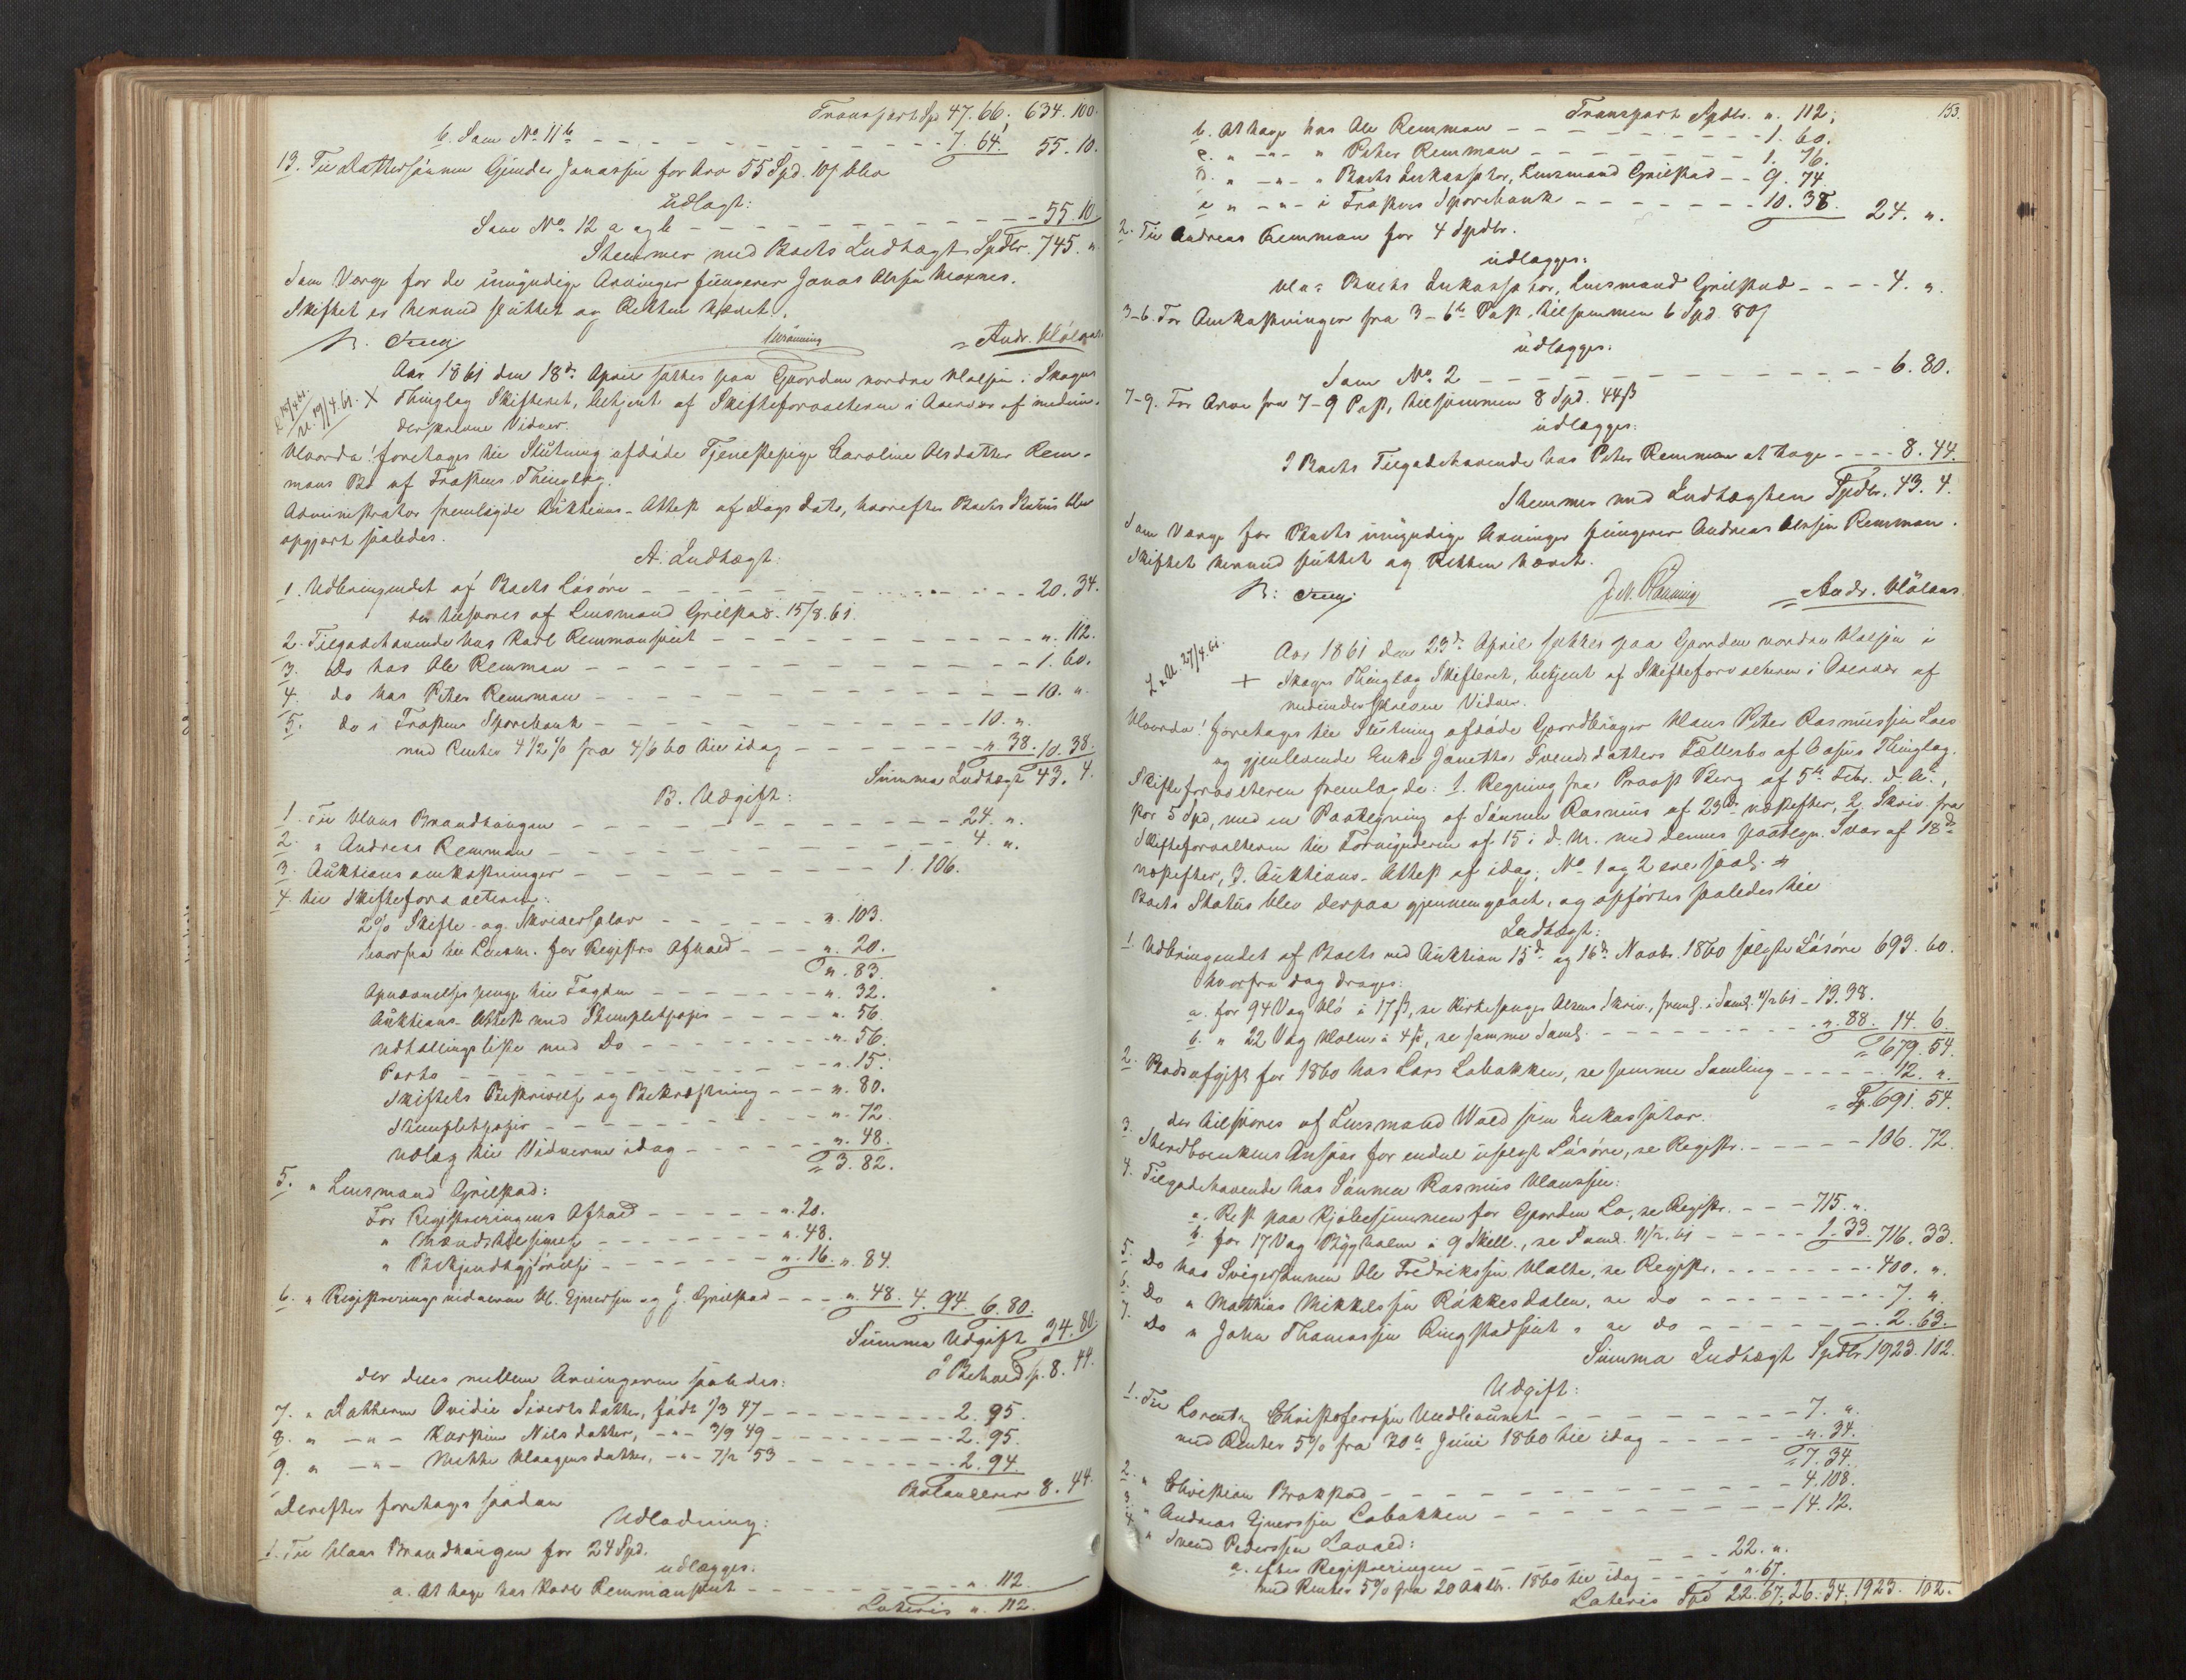 Transport Spd 47. 66; 634. 100.
b. Som No 11 b - - - 7. 64. 55. 10.
13. Til Dattersønnen Gunder Jonassen for Arv 55 Spd. 10 ß blev
udlagt:
Som No 12 a og b - - - 55. 10
Stemmer med Boets Indtægt Spdlr. 745. "
Som Værge for de umyndige Arvinger fungerer Jonas Olsen Moxnes.
Skiftet er hermed sluttet og Retten hævet.
Rønning
Andr. Wölaas
Aar 1861 den 18de April sattes paa Gaarden nordre Klefsju i Skogns
Thinglag Skifteret, betjent af Skifteforvalteren i Overvær af nedenun-
derskrevne Vidner.
Hvorda! foretages til Slutning afdøde Tjenestepige Caroline Olsdatter Rem-
mans Bo af Frostens Thinglag.
Administrator fremlagde Auktions-Attest af Dags Dato, hvorefter Boets Status blev
opgjort saaledes.
A. Indtægt:
1. Udbringendet af Boets Løsøre - - - 20. 34.
der tilsvares af Lensmand Grilstad 15/8. 61.
2. Tilgodehavende hos Karl Remmansvet - - - ". 112.
3. Do hos Ole Remman - - - 1. 60.
4. do hos Peter Remman - - - 10. "
5. do i Frostens Sparebank - - - 10. ".
med Renter 4 1/2 % fra 4/6 60 til idag - - - ". 38. 10. 38.
Summa Indtægt 43. 4.
B. Udgift:
1. Til Klaus Brandhaugen - - - 24. ".
2. " Andreas Remman - - - 4. ".
3. Auktionsomkostninger - - - 1. 106.
4. til Skifteforvalteren:
2% Skifte- og Skriversalær - - - ". 103.
hvorfra til Lensm. for Registrs Afhold - - - ". 20.
". 83.
Opnævnelsespenge til Fogden - - - ". 32.
Auktions-Attest med Stempletpapir - - - ". 56.
Udtællingsliste med Do - - - ". 56.
Porto - - - ". 15.
Skiftets Beskrivelse og Bekræftning - - - ". 80.
Stempletpapir - - - ". 72.
Udlæg til Vidnerne idag - - - ". 48.
= 3. 82.
5. " Lensmand Grilstad:
For Registreringens Afhold - - - ". 20.
" - - - ". 48.
" Bekjendtgjørelse - - - ". 16. ". 84.
6. " Registreringsvidnerne Ol. Ejnersen og J. Grilstad - - - ". 48. 4. 94. 6. 80.
Summa Udgift 34. 80.
I Behold p. 8. 44.
der deles mellem Arvingerne saaledes:
7. " Datteren Ovidie Sivertsdatter, født 1/3 47 - - - 2. 95.
8. " -"- Karstine Nilsdatter, -"- 3/9 49 - - - 2. 95.
9. " -"- Mette Haagensdatter, -"- 7/12 53 - - - 2. 94.
Balancerer 8. 44.
Derefter foretages saadan
Udlodning:
1. Til Klaus Brandhaugen for 24 Spd.
udlægges:
a. At tage hos Karl Remmansvet - - - ". 112.
Lateris ". 112.
153.
Transport Spdlr. ". 112;
b. At tage hos Ole Remman - - - 1. 60.
c. " -"- " Peter Remman - - - 1. 76.
d. " -"- " Boets Inkassator, Lensmand Grilstad - - 9. 74.
e. " -"- i Frostens Sparebank - - - 10. 38. 24. ".
2. Til Andreas Remman for 4 Spdlr.
udlægges:
hos Boets Inkassator, Lensmand Grilstad - - - 4. ".
3-6. For Omkostninger fra 3-6te Post, tilsammen 6 Spd. 80 ß
udlægges:
Som No 2 - - - 6. 80.
7-9. For Arven fra 7-9 Post, tilsammen 8 Spd. 44 ß
udlægges:
I Boets Tilgodehavende hos Peter Remman at tage - - - 8. 44.
Stemmer med Indtægten Spdlr. 43. 4.
Som Værge for Boets umyndige Arvinger fungerer Andreas Olsen Remman.
Skiftet hermed sluttet og Retten hævet.
Rønning
Andr. Wölaas.
Aar 1861 den 23de April sattes paa Gaarden nordre Klefsju i
Skogns Thinglag Skifteret, betjent af Skifteforvalteren i Overvær af
nedenunderskrevne Vidner.
Hvorda! foretages til Slutning afdøde Gaardbruger Klaus Peter Rasmussen Loes
og gjenlevende Enke Janetha Svendsdatters Fællesbo af Aasens Thinglag.
Skifteforvalteren fremlagde: 1. Regning fra Provst Berg af 5te Febr. d. A.,
stor 5 Spd, med en Paategning af Sønnen Rasmus af 23de næstefter, 2. Skriv. fra
Skifteforvalteren til Formynderen af 15 i d. M. med dennes paategn. Svar af 18de
næstefter, 3. Auktions-Attest af idag; No 1 og 2 ere saal.
Boets Status blev derpaa gjennemgaaet, og opførtes saaledes til
Indtægt:
1. Udbringendet af Boets ved Auktion 15de og 16de Novbr. 1860 solgte Løsøre 693. 60.
hvorfra dog drages:
a. for 94 Vog Hø à 17 ß, se Kirkesanger Olsens Skriv., freml. i Saml. 11/2 61 - 13. 38.
b. " 22 Vog Halm à 4 ß, se samme Saml. - - - ". 88. 14. 6.
= 679. 54.
2. Bods afgift for 1860 hos Lars Lobakken, se samme Samling - - - 12. ".
= Sp. 691. 54.
der tilsvares af Lensmand Wold som Inkassator.
3. Sterbenkens Ansvar for endel usolgt Løsøre, se Registr. - - - 106. 72.
4. Tilgodehavende hos Sønnen Rasmus Klaussen:
a. Rest paa Kjøbesummen for Gaarden Lo, se Registr. - - - 715. ".
b. for 17 Vog Byghalm à 9 Skill., se Saml. 11/2. 61 - - - 1. 33. 716. 33.
5. Do hos Svigersønnen Ole Fredriksen Walte, se Registr. - - - 400. ".
6. Do " Mathias Mikkelsen Røkkesdalen, se do - - - 7. ".
7. Do " John Thomassen Ringstadsvet, se do - - - 2. 63.
Summa Indtægt Spdlr. 1923. 102.
Udgift:
1. Til Lorentz Christofersen - - - 7. ".
med Renter 5% fra 30te Juni 1860 til idag - - - ". 34.
= 7. 34.
2. " Christian Brakstad - - - 4. 108.
3. " Andreas Ejnersen Lobakken - - - 14. 12.
4. " Svend Pedersen Lavold:
a. efter Registreringen - - - 22. ".
med Renter 5% fra 20 1860 til idag - - - ". 67.
Lateris Spd 22. 67; 26. 34; 1923. 102.